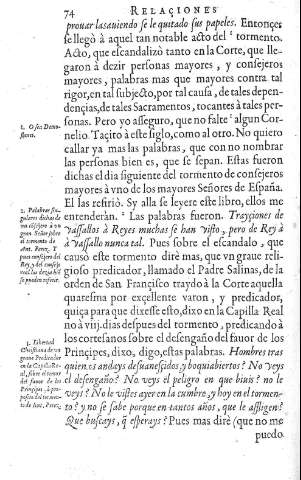 74 RELACIONES
prouar lasauiendo se le quitado sus papeles. Entonçes
se llegò à aquel tan notable acto del ¹ tormento.
Acto, que escandalizò tanto en la Corte, que lle-
garon à dezir personas mayores, y consejeros
mayores, palabras mas que mayores contra tal
rigor, en tal subjecto, por tal causa, de tales depen-
dençias, de tales Sacramentos, tocantes à tales per-
sonas. Pero yo asseguro, que no falte ² algun Cor-
nelio. Taçito à este siglo, como al otro. No quiero
callar ya mas las palabras, que con no nombrar
las personas bien es, que se sepan. Estas fueron
dichas el dia siguiente del tormento de consejeros
mayores à vno de los mayores Señores de España.
El las refiriò. Sy alla se leyere este libro, ellos me
entenderàn. ² Las palabras fueron. Trayçiones de
vassallos à Reyes muchas se han visto, pero de Rey à
à vassallo nunca tal. Pues sobre el escandalo, que
causò este tormento dirè mas, que vn graue reli-
gioso predicador, llamado el Padre Salinas, de la
orden de San Françisco traydo à la Corte aquella
quaresma por excellente varon, y predicador,
quiça para que dixesse esto, dixo en la Capilla Real
no à viij. dias despues del tormento, predicando à
los cortesanos sobre el desengaño del fauor de los
Prinçipes, dixo, digo, estas palabras. Hombres tras
quien es andays desuanesçidos y boquiabiertos? No veys
el desengaño? No veys el peligro en que biuis? no le
veys? No le vistes ayer en la cumbre, y hoy en el tormen-
to? y no se sabe porque en tantos años, que le affligen?
Que buscays, q̃ esperays? Pues mas dirè (que no me
puedo
1. O fea Demo-
stares.
2. Palabras sin-
gulares dichas de
vn consejero à vn
gran Señor sobre
el tormento de
Ant. Perez, Y
pues consejero del
Rey, y del consejo
real las dezia bien
se pueden referir.
3. Libertad
Christiana de vn
graue Predicador
en la Capilla Re-
al, sobre el temor
del fauor de los
Prinçipes, à pro-
posito del tormen-
to de Ant. Perez.